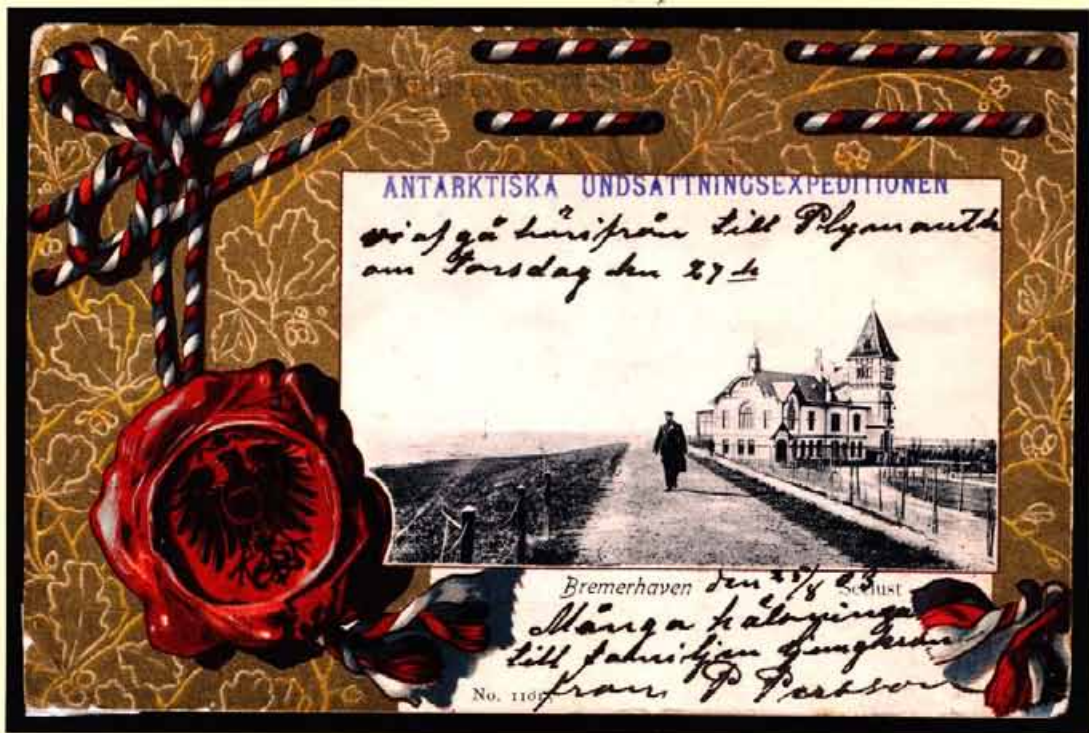 ANTARKTISKA UNDSÄTTNINGSEXPEDITIONEN
vi afgå härifrån till Plymouth
om Torsdag den 27 de
Bremerhaven den 25/8 03 Seelust
Många hälsningar
till familjen Ljungkron
från P Persson
No. 1101